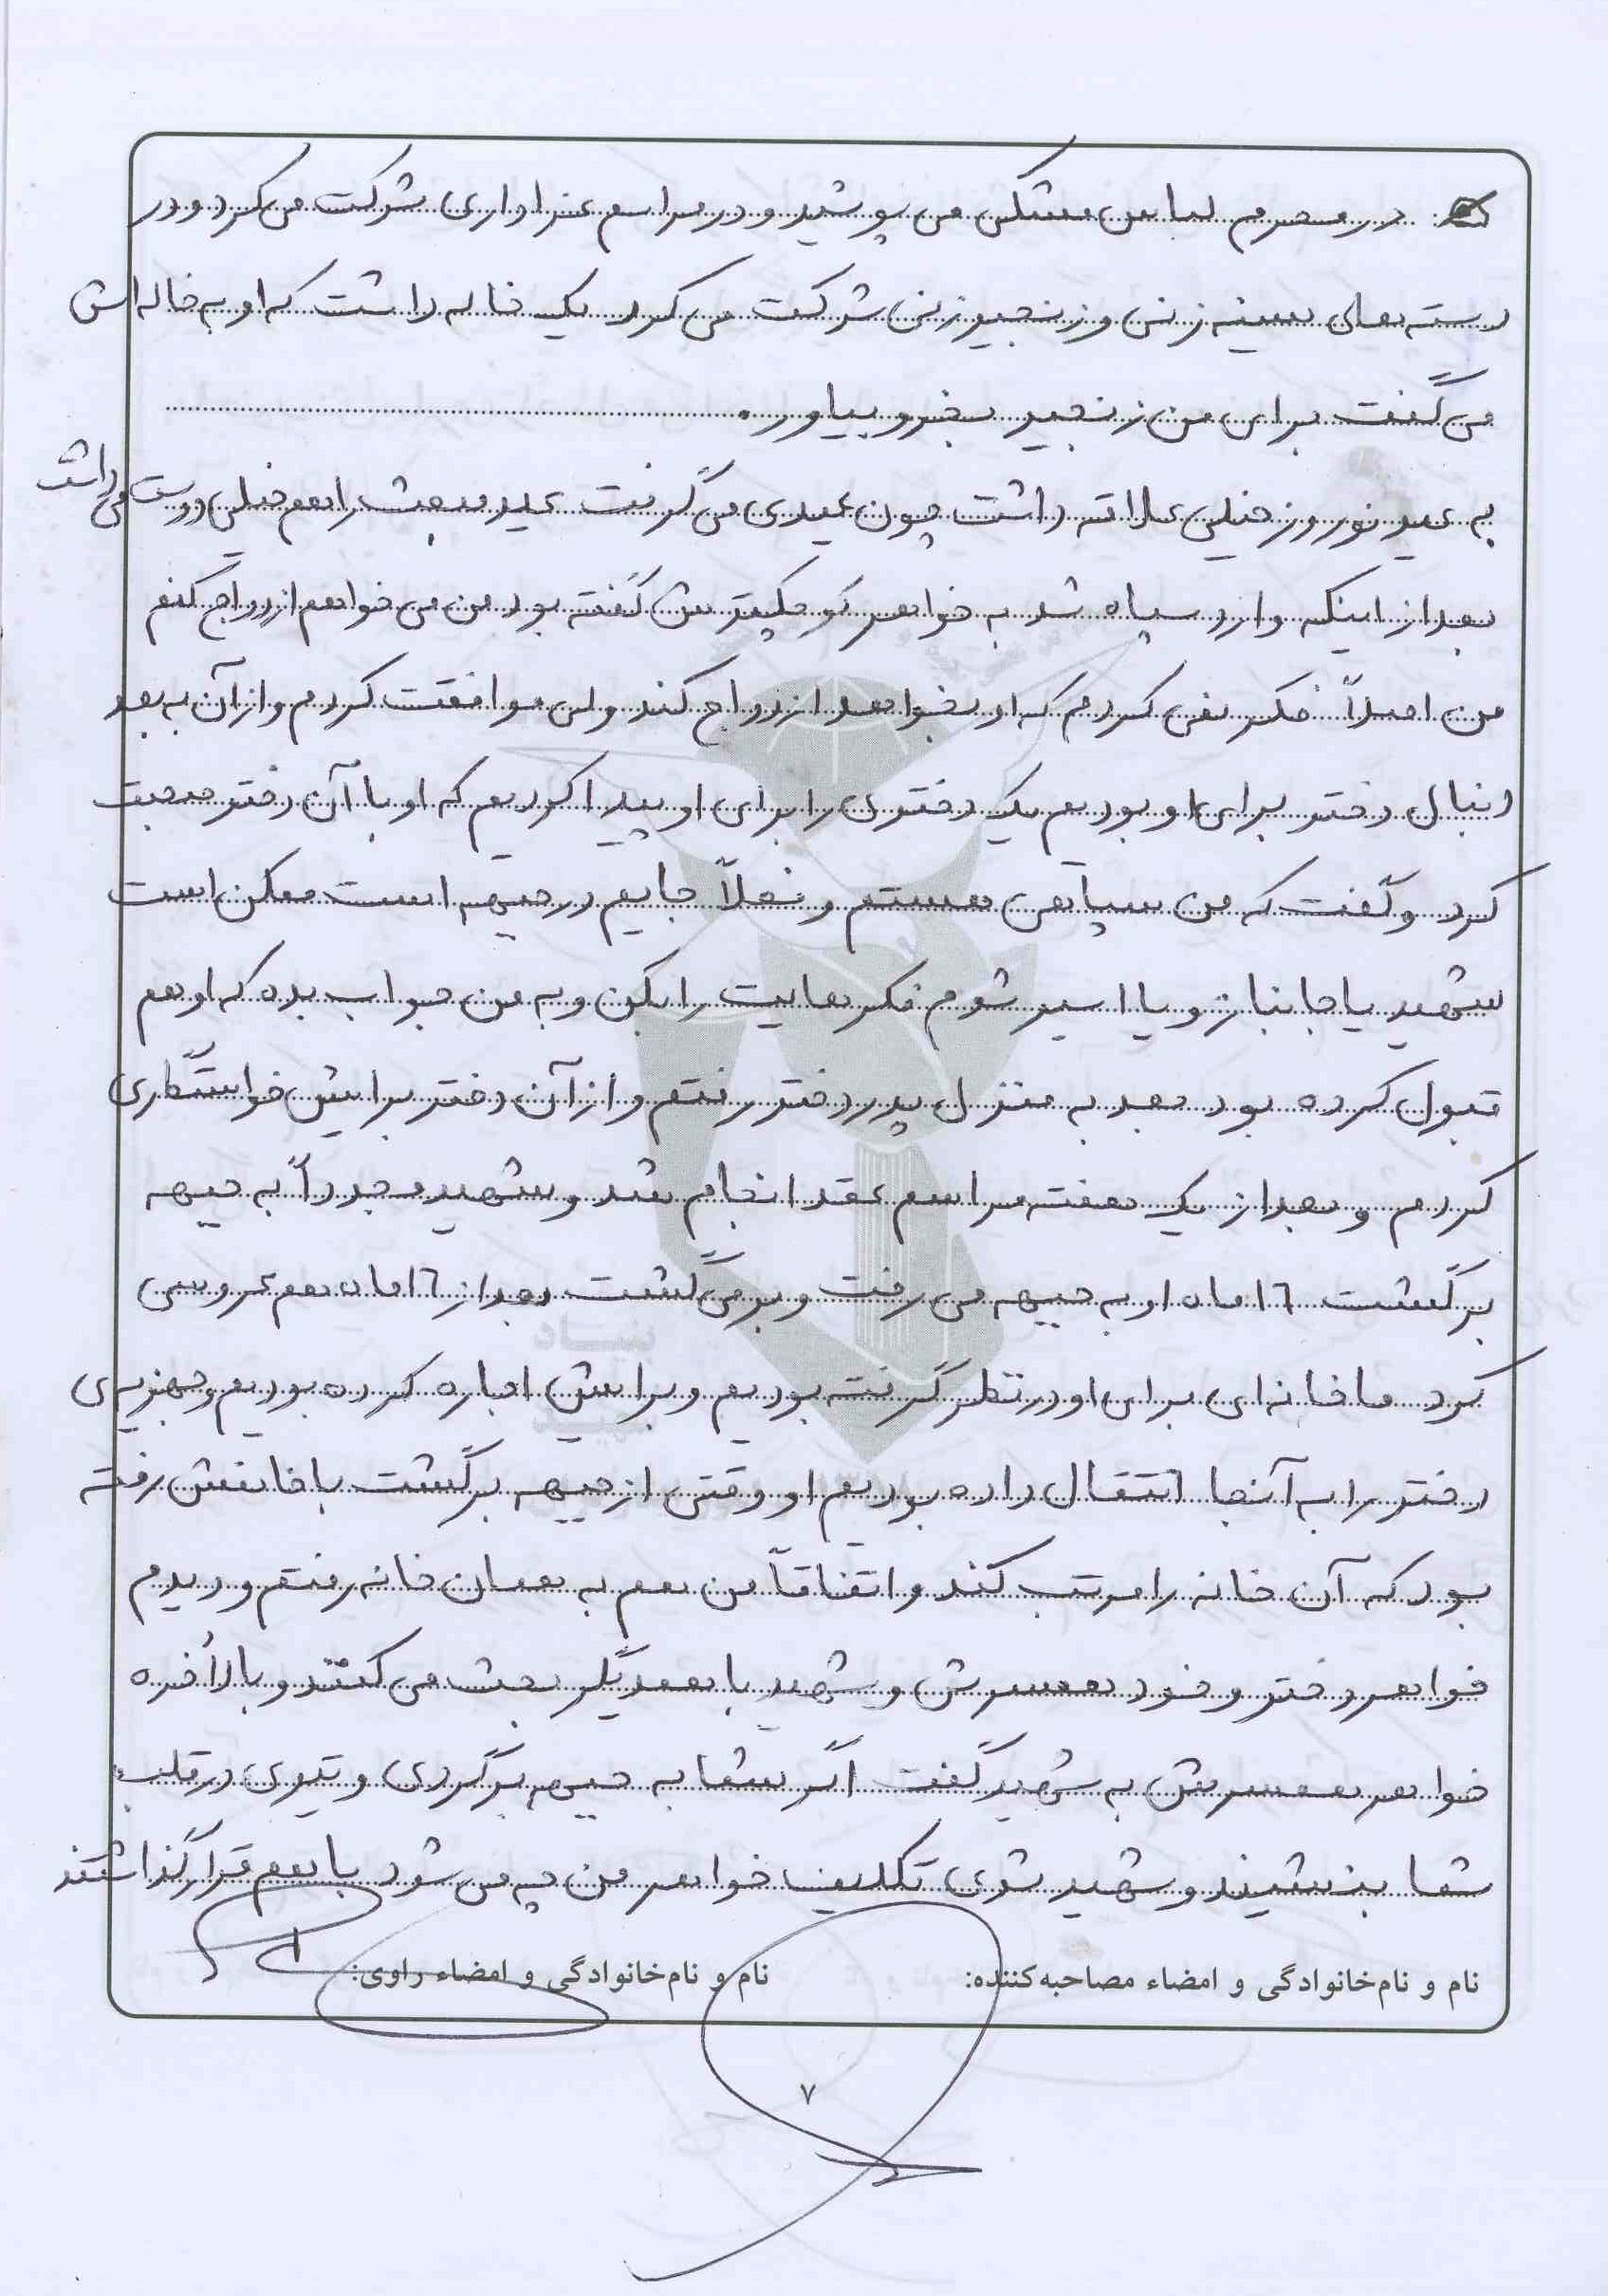 در محرم لباس مشکی می پوشید و در مراسم عزاداری شرکت می کرد و در
دسته های سینه زنی و زنجیرزنی شرکت می کرد یک خاله داشت که او به خاله اش
می گفت برای من زنجیر بخر و بیاور.
به عید نوروز خیلی علاقه داشت چون عیدی می گرفت عید مبعث را هم خیلی دوست می داشت
بعد از اینکه وارد سپاه شد به خواهر کوچکترش گفته بود من می خواهم ازدواج کنم
من اصلاً فکر نمی کردم که او بخواهد ازدواج کند ولی موافقت کردم و از آن به بعد
دنبال دختر برای او بودیم یک دختری را برای او پیدا کردیم که او با آن دختر صحبت
کرد و گفت که من سپاهی هستم و فعلاً جایم در جبهه است ممکن است
شهید یا جانباز و یا اسیر شوم فکرهایت را بکن و به من جواب بده که او هم
قبول کرده بود بعد به منزل پدر دختر رفتم و از آن دختر برایش خواستگاری
کردم و بعد از یک هفته مراسم عقد انجام شد و شهید مجدداً به جبهه
برگشت ۱۶ ماه او به جبهه می رفت و برمی گشت بعد از ۱۶ ماه هم عروسی
کرد ما خانه ای برای او در نظر گرفته بودیم و برایش اجاره کرده بودیم و جهزیه ی
دختر را به آنجا انتقال داده بودیم او وقتی از جبهه برگشت با خانمش رفته
بود که آن خانه را مرتب کند و اتفاقاً من هم به همان خانه رفتم و دیدم
خواهر دختر و خود همسرش و شهید با همدیگر بحث می کنند و بالأخره
خواهر همسرش به شهید گفت اگر شما به جبهه برگردی و تیری در قلب
شما بنشیند و شهید شدی تکلیف خواهر من چه می شود با هم قرار گذاشتند
نام و نام خانوادگی و امضاء مصاحبه کننده: نام و نام خانوادگی و امضاء راوی:
۷